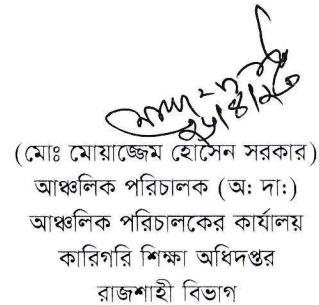 (মোঃ মোয়াজ্জেম হোসেন সরকার)
আঞ্চলিক পরিচালক (অ: দা:)
আঞ্চলিক পরিচালকের কার্যালয়
কারিগরি শিক্ষা অধিদপ্তর
রাজশাহী বিভাগ